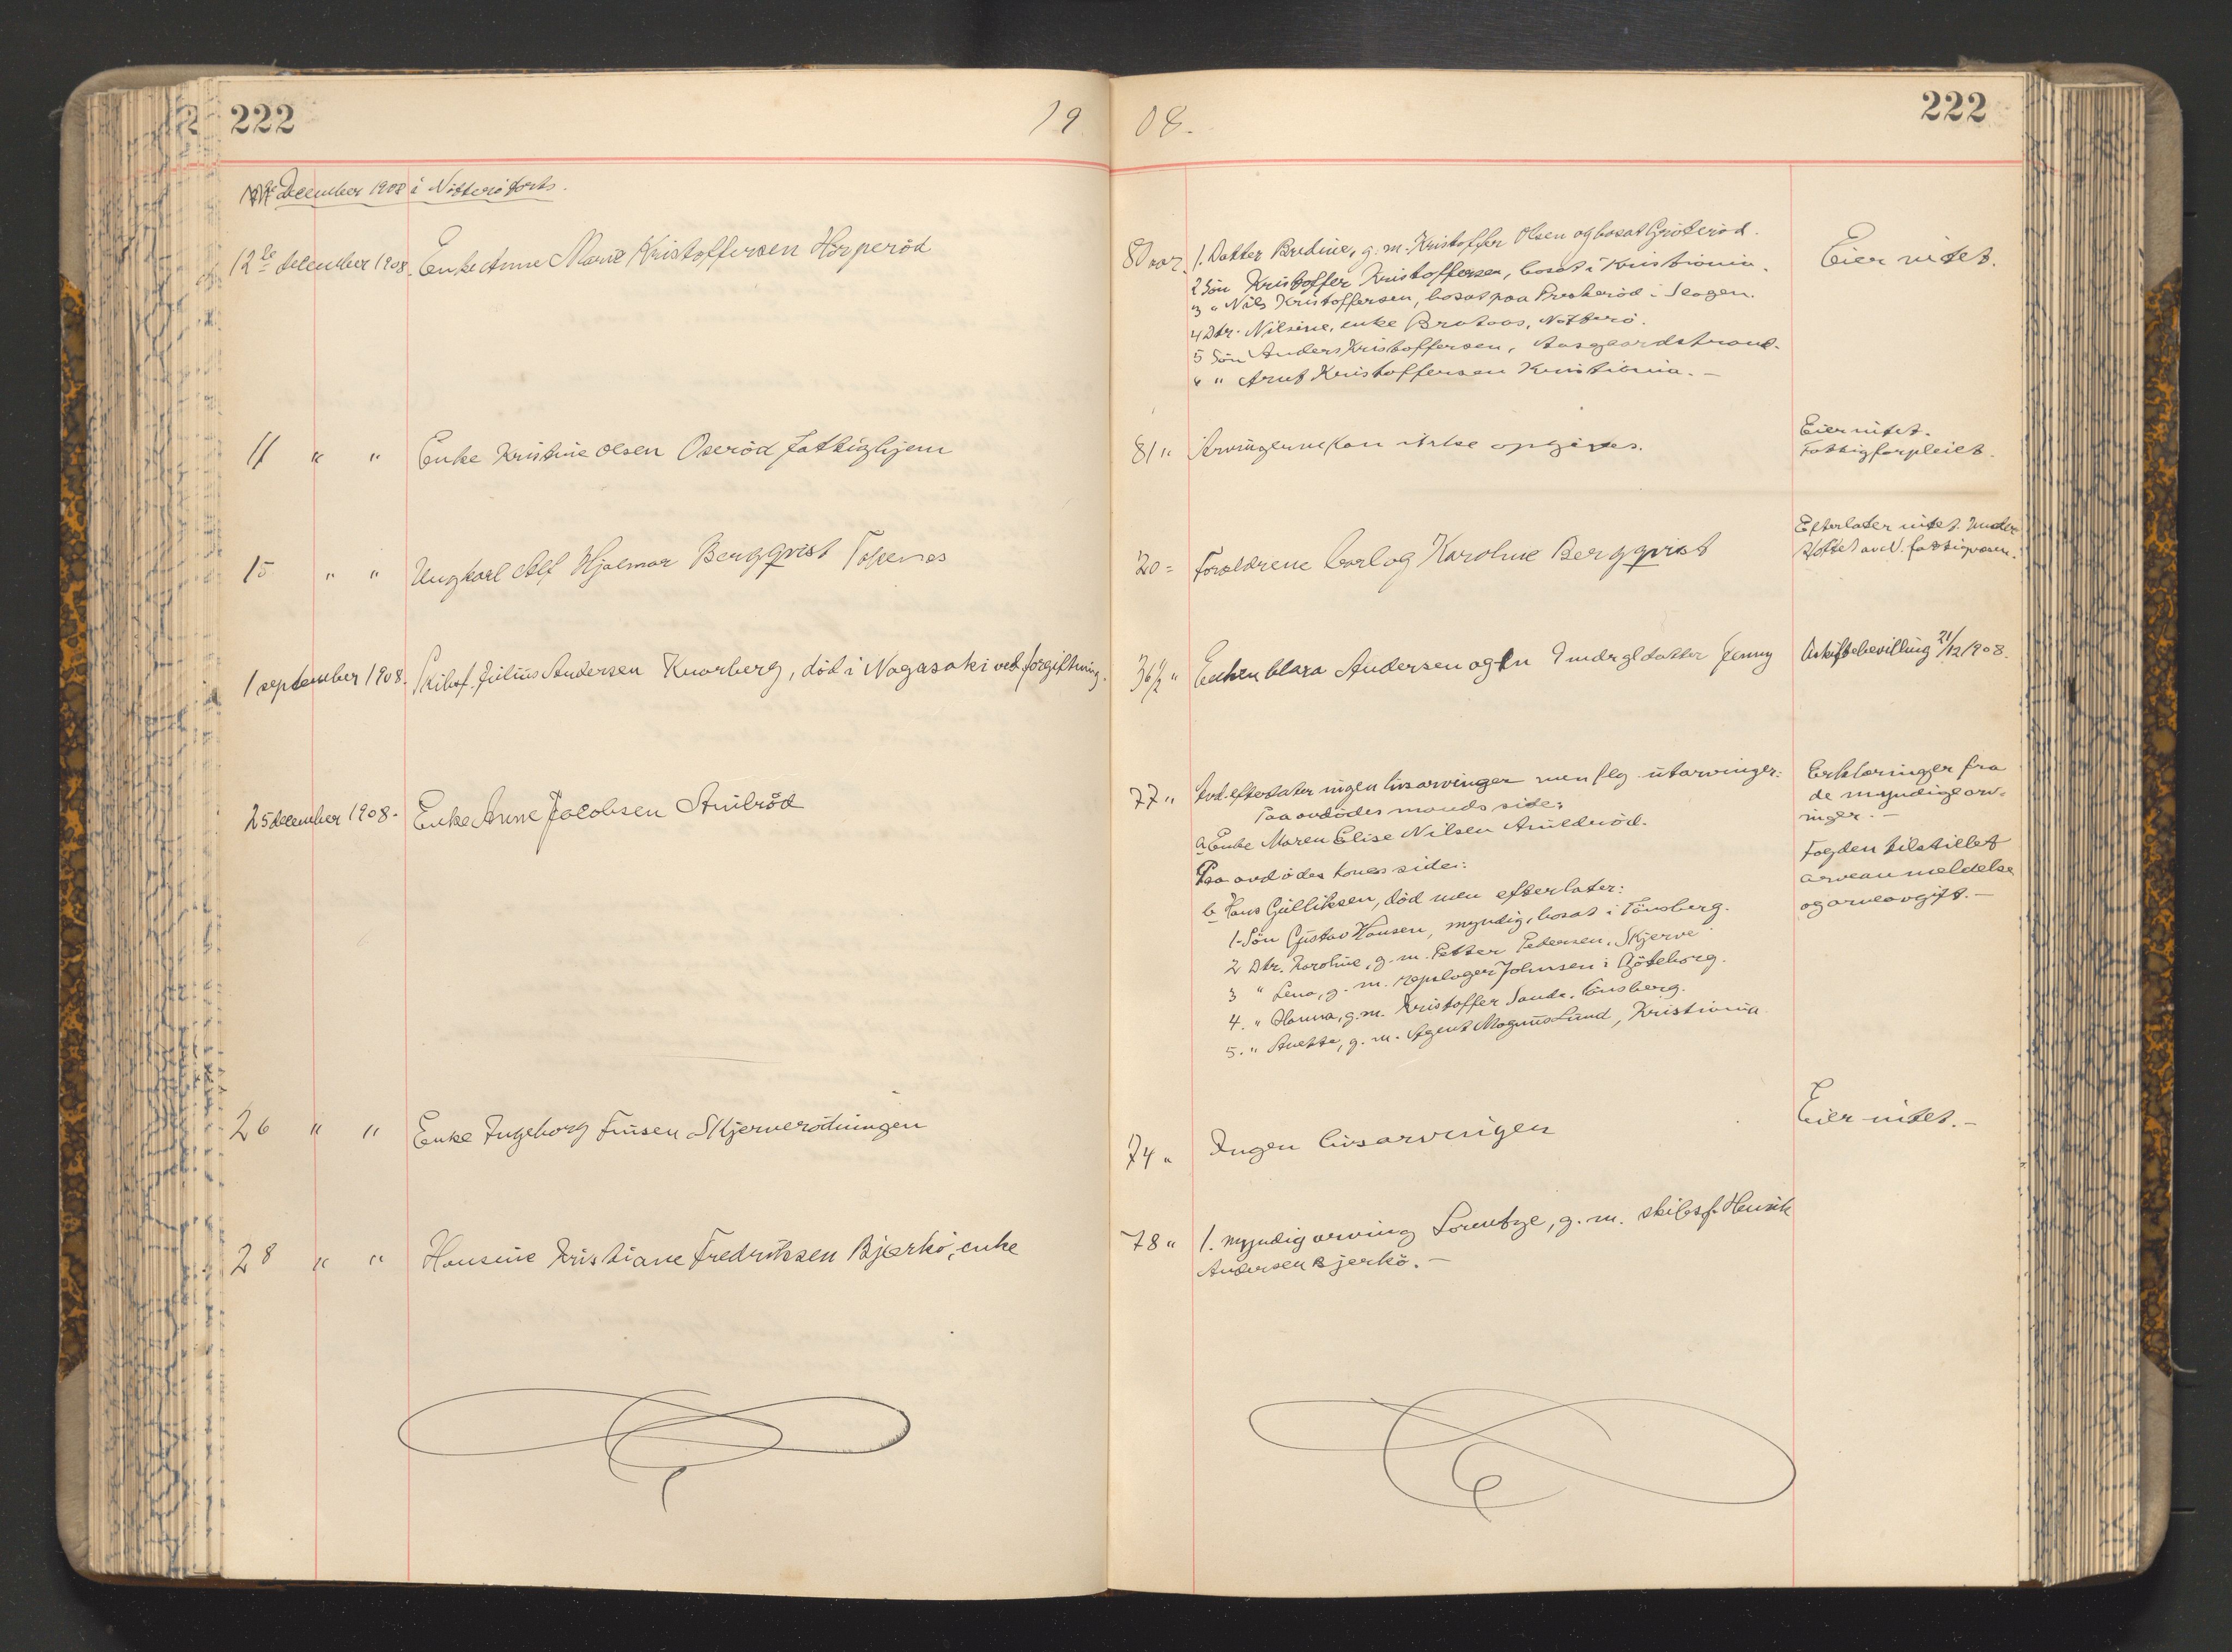 222
19
08.
222
December 1908 i Nötterö
12te december 1908. Enke Anne Marie Kristoffersen Horperöd
80 aar. 1. Datter Bredine, g. m. Kristoffer Olsen og bosat Gröteröd.
2 Sön Kristoffer Kristoffersen, bosat i Kristiania.
3 " Nils Kristoffersen, bosat paa Presteröd i Slagen.
4 Dtr. Nilsine, enke Brataas, Nötterö.
5 Sön Anders Kristoffersen, Aasgaardstrand.
6 " Arnt Kristoffersen Kristiania. —
Eier intet.
11 " " Enke Kristine Olsen Oseröd fattighjem
81 " Arvingerne kan ikke opgives.
Eier intet.
Fattigforpleiet.
15 " " Ungkarl Alf Hjalmar Bergqvist Tokenes
20 = Forældrene Carl og Karoline Bergqvist
Efterlater intet. Under
støttet av N. fattigvæsen.
1 september 1908. Skibsf. Julius Andersen Knarberg, död i Nagasaki ved forgiftning.
36 1/2 " Enken Clara Andersen og en datter Jenny
Uskiftebevilling 21/12 1908.
25 december 1908. Enke Anne Jacobsen Aulröd
77 " Avd. efterlater ingen livsarvinger men flg. utarvinger:
Paa avdödes mands side:
a Enke Maren Elise Nilsen
Paa avdödes kones side:
b Hans Gulliksen, död men efterlater:
1. Sön Gustav Hansen, myndig, bosat i Tönsberg.
2 Dtr. Karoline, g. m. Petter Pedersen, Skjerve.
3 " Lena, g. m. repslager Johnsen i Göteborg.
4. " Hanna, g. m. Kristoffer Sande, Tönsberg.
5. " Anette, g. m. Agent Magnus Lund, Kristiania
Erklæringer fra
de myndige arv-
inger. —
Fogden tilstillet
arveanmeldelse
og arveavgift. —
26 " " Enke Ingeborg Fusen Skjerverödningen
74 " Ingen livsarvinger
Eier intet. —
28 " " Hansine Kristiane Fredriksen Bjerkö, enke
78 " 1. myndig arving Lorentze, g. m. skibsf. Henrik
Andersen Bjerkö. —